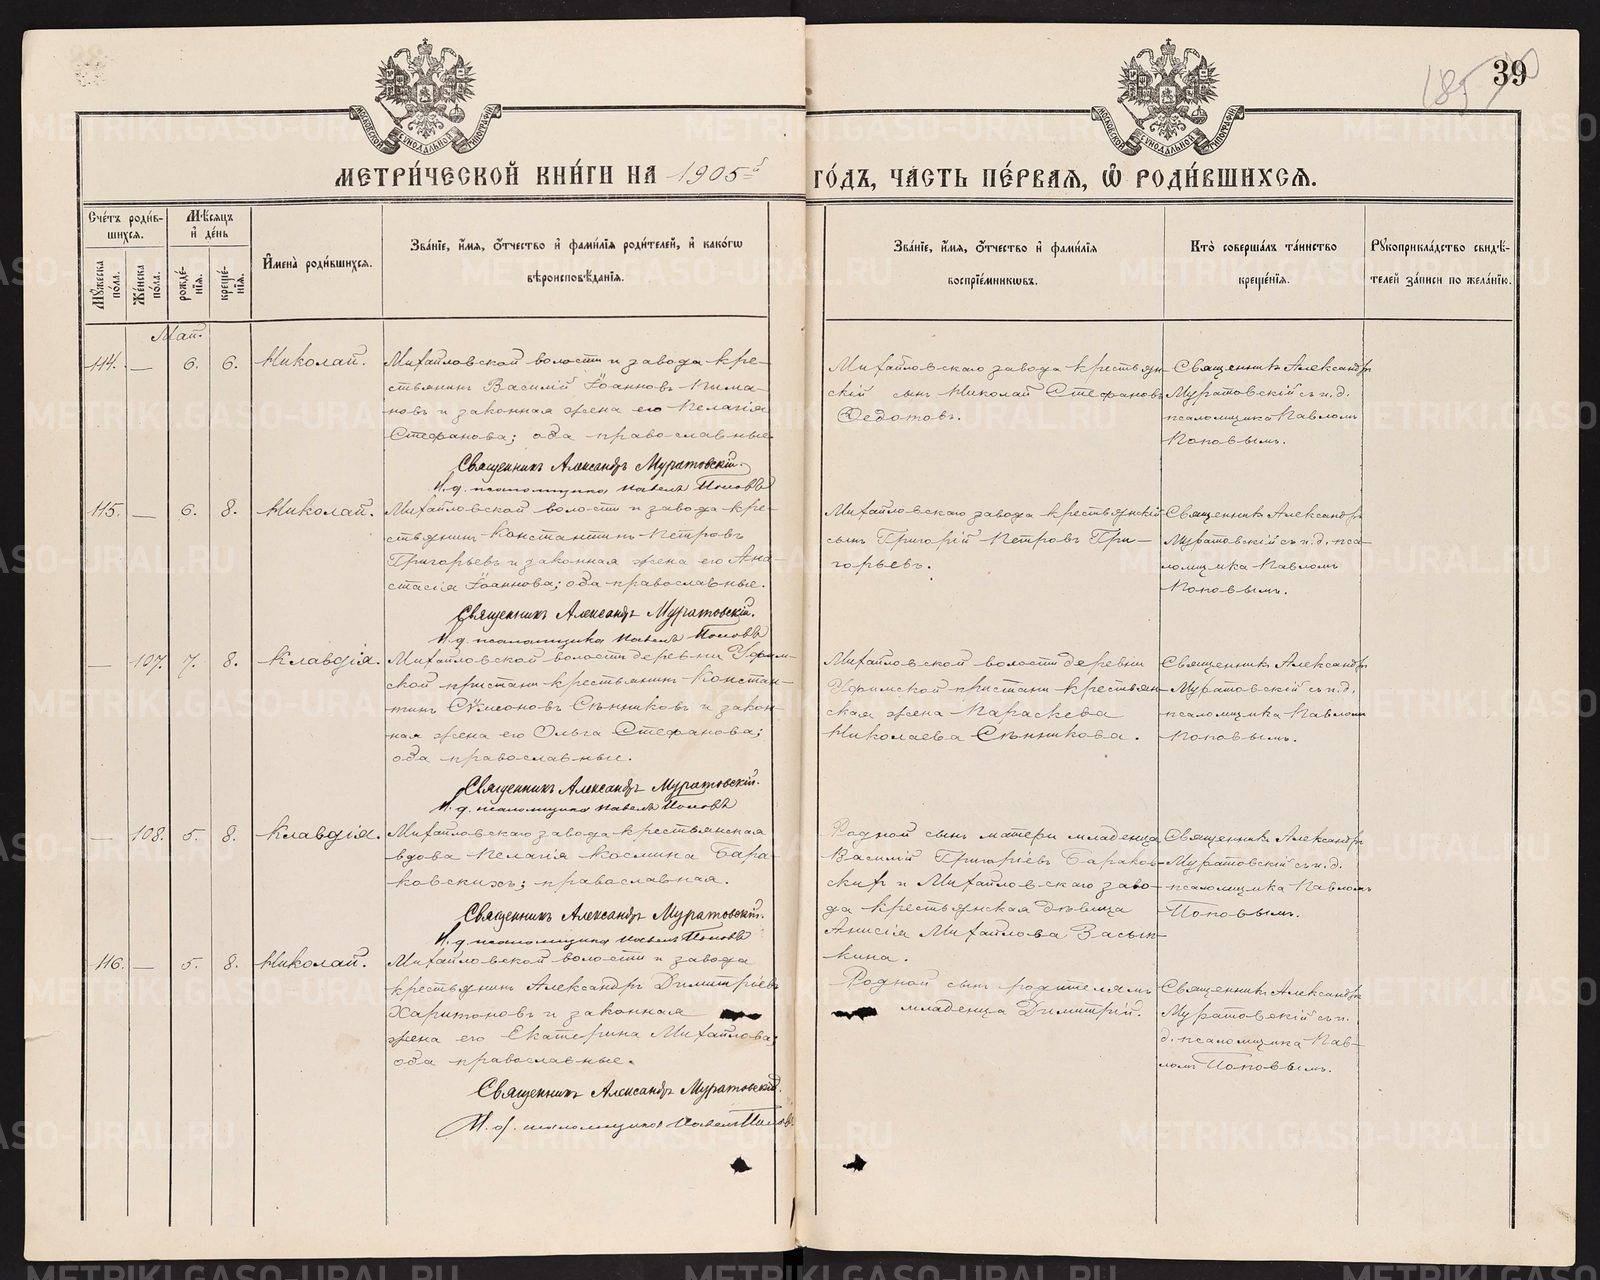 39
185
МОСКОВСКОЙ СѴНОДАЛЬНОЙ ТИПОГРАФІИ
МОСКОВСКОЙ СѴНОДАЛЬНОЙ ТИПОГРАФІИ
МЕТРИ́ЧЕСКОЙ КНИ́ГИ НА 1905й ГО́ДЪ, ЧА́СТЬ ПЕ́РВАЯ, Ѽ РОДИ́ВШИХСЯ.
Сче́тъ роди́вшихся.
Мужеска по́ла.
Же́нска по́ла.
Мѣ́сяцъ и҆ де́нь
рожде́нїя.
креще́нїя.
И҆мена̀ роди́вшихся.
Зва́нїе, и҆́мя, ѻ҆́тчество и҆ фами́лїя роди́телей, и҆ како́гѡ вѣроисповѣ́данїя.
Зва́нїе, и҆́мя, ѻ҆́тчество и҆ фами́лїя воспрїе́мникѡвъ.
Кто̀ соверша́лъ та́инство креще́нїя.
Рукоприкла́дство свидѣ́телей за́писи по жела́нїю.
Май.
114. — 6. 6. Николай.
Михайловской волости и завода кре-
стьянинъ Василій Іоанновъ Пима-
новъ и законная жена его Пелагія
Стефанова; оба православные.
Священникъ Александръ Муратовскій.
И. д. псаломщика Павелъ Поповъ
Михайловскаго завода крестьян-
скій сынъ Николай Стефановъ
Ѳедотовъ.
Священникъ Александръ
Муратовскій съ и. д.
псаломщика Павломъ
Поповымъ.
115. — 6. 8. Николай.
Михайловской волости и завода кре-
стьянинъ Константинъ Петровъ
Григорьевъ и законная жена его Ана-
стасія Іоаннова; оба православные.
Священникъ Александръ Муратовскій.
И. д. псаломщика Павелъ Поповъ
Михайловскаго завода крестьянскій
сынъ Григорій Петровъ Гри-
горьевъ.
Священникъ Александръ
Муратовскій съ и. д. пса-
ломщика Павломъ
Поповымъ.
— 107. 7. 8. Клавдія.
Михайловской волости деревни Уфим-
ской пристани крестьянинъ Констан-
тинъ Сѵмеоновъ Сѣнниковъ и закон-
ная жена его Ольга Стефанова;
оба православные.
Священникъ Александръ Муратовскій.
И. д. псаломщика Павелъ Поповъ
Михайловской волости деревни
Уфимской пристани крестьян-
ская жена Параскева
Николаева Сѣнникова.
Священникъ Александръ
Муратовскій съ и. д.
псаломщика Павломъ
Поповымъ.
— 108. 5. 8. Клавдія.
Михайловскаго завода крестьянская
вдова Пелагія Космина Бара-
ковскихъ; православная.
Священникъ Александръ Муратовскій.
И. д. псаломщика Павелъ Поповъ
Родной сынъ матери младенца
Василій Григорьевъ Бараков-
скихъ и Михайловскаго заво-
да крестьянская дѣвица
Анисія Михайлова Засып-
кина.
Священникъ Александръ
Муратовскій съ и. д.
псаломщика Павломъ
Поповымъ.
116. — 5. 8. Николай.
Михайловской волости и завода
крестьянинъ Александръ Димитріевъ
Харитоновъ и законная
жена его Екатерина Михайлова;
оба православные.
Священникъ Александръ Муратовскій.
И. д. псаломщика Павелъ Поповъ
Родной сынъ родителямъ
младенца Димитрій.
Священникъ Александръ
Муратовскій съ и.
д. псаломщика Пав-
ломъ Поповымъ.
METRIKI.GASO-URAL.RU